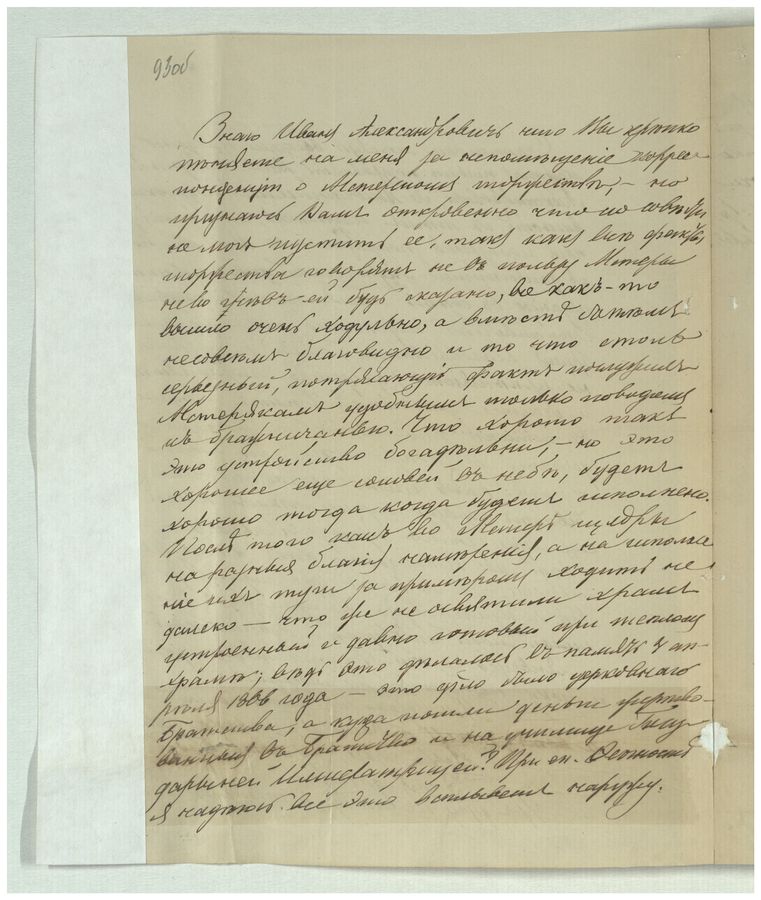 93об
Знаю Иванъ Александровичъ что Вы крѣпко
пѣняете на меня за непомѣщеніе корре-
понденціи о Мстерскомъ торжествѣ, – но
признаюсь Вамъ откровенно что по совѣсти
не могъ пустить ее, такъ какъ всѣ факты
торжества говорятъ не въ пользу Мстеры
не во гнѣвъ ей будь сказано, все какъ-то
вышло очень ходульно, а вмѣстѣ съ тѣмъ
несовсемъ благовидно и то что столь
серьезный, потрясающій фактъ послужилъ
Мстерякамъ удобнымъ только поводомъ
къ бражничанью. Что хорошо такъ
это устройство богадѣльни, – но это
хорошее еще соловей въ небѣ, будетъ
хорошо тогда когда будетъ исполнено.
Послѣ того какъ во Мстерѣ щедры
на разныя благія намѣренія, а на исполне
ніе ихъ туги за примѣромъ ходить не
далеко – что же не освятили храмъ
устроенный и давно готовый при тепломъ
храмѣ; вѣдь это дѣлалось въ память 4 ап-
рѣля 1866 года – это дѣло было церковнаго
Братства, а куда пошли деньги жертво-
ванныя въ Братство и на училище Госу-
дарыней Императрицей? При
я надѣюсь все это всплыветъ наружу.